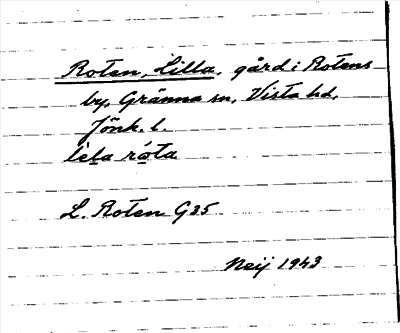 Roten, Lilla, gård i Rotens
by, Gränna sn, Vista hd,
Jönk. l.
lela róta
L. Roten G35
Neij 1943